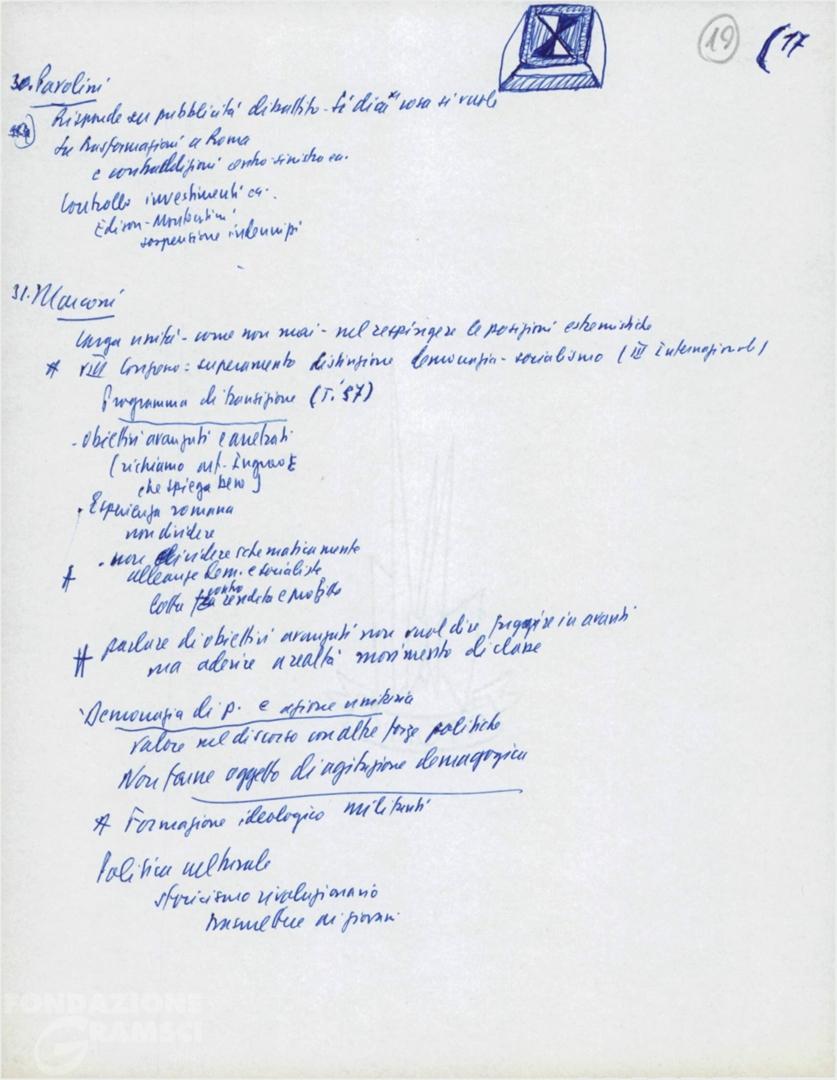 19 (17
30. Pavolini
Risponde su pubblicità dibattito - Si dica cosa si vuole
Su trasformazioni a Roma
e contraddizioni centro-sinistra ec.
Controllo investimenti ec.
Edison-Montecatini
sospensione indennizzi
31. Marconi
Larga unità - come non mai - nel respingere le posizioni estremistiche
VIII Congresso: superamento distinzione democrazia - socialismo (III Internazionale)
Programma di transizione (T. 57)
- Obiettivi avanzati e arretrati
(richiamo art. Ingrao
che spiega bene)
. Esperienza romana
non dividere
- non dividere schematicamente
alleanze dem. e socialiste
lotta contro rendita e profitto
parlare di obiettivi avanzati non vuol dire fuggire in avanti
ma aderire a realtà movimento di classe
Democrazia di p. e azione unitaria
Valore nel discorso con altre forze politiche
Non farne oggetto di agitazione demagogica
Formazione ideologica militanti
Politica culturale
storicismo rivoluzionario
trasmettere ai giovani
FONDAZIONE
GRAMSCI